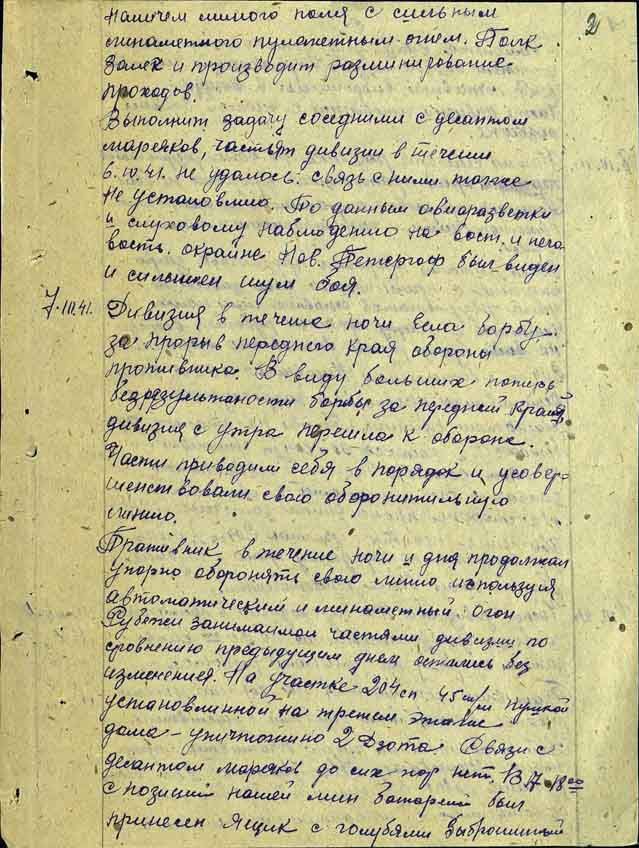 2
Наличем минного поля с сильным
минаметного пуламетным огнем. Полк
залек и производит разминирование
проходов.
Выполнит задачу соседними с десантом
марсяков, частят дивизии в течении
6.10.41. не удалось. связь с ними также
не установлино. По данным авиаразветки
и слуховому наблюдению на вост. и
вость. окраине Нов. Петергоф был виден
и сильнен шум боя.
7.10.41. Дивизия в течение ночи вела борбу
за прорыв переднего края обороны
противника. В виду больших потерь
безрезультаности борбы за передней край
дивизия с утра перешла к обороне.
Части приводили себя в порядок и усовер-
шенствовали свою оборонительную
линию.
Противник в течение ночи и дня продолжал
упорно оборонять свою линию используя
автоматический и минаметный огон
Рубежи занимаимои частями дивизии по
сравнению предыдущим днем остались без
изменений. На участке 204сп 45 м/м пушкой
установлинной на третем этаже
дома - уничтожино 2 Дзота Связи с
десантом марсяков до сих пор нет. В 18 00
с позиций нашей мин батареий был
принесен ящик с голубями выброшиный